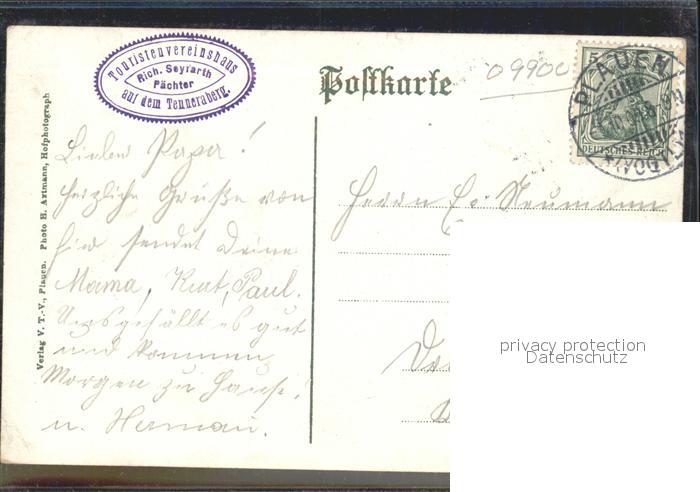 Touristenvereinshaus
Rich. Seyfarth
Pächter
auf dem Tennersberg.
Postkarte
09900
5
PLAUEN
(VOGTL.)
DEUTSCHES REICH
Verlag V. T.-V., Plauen. Photo H. Axtmann, Hofphotograph
Lieber Papa!
Herzliche Grüße von
hier sendet Deine
Mama, Kurt, Paul.
Uns gefällt es gut
und kommen
Morgen zu Hause!
u. Herman.
Herrn E. Neumann
privacy protection
Datenschutz